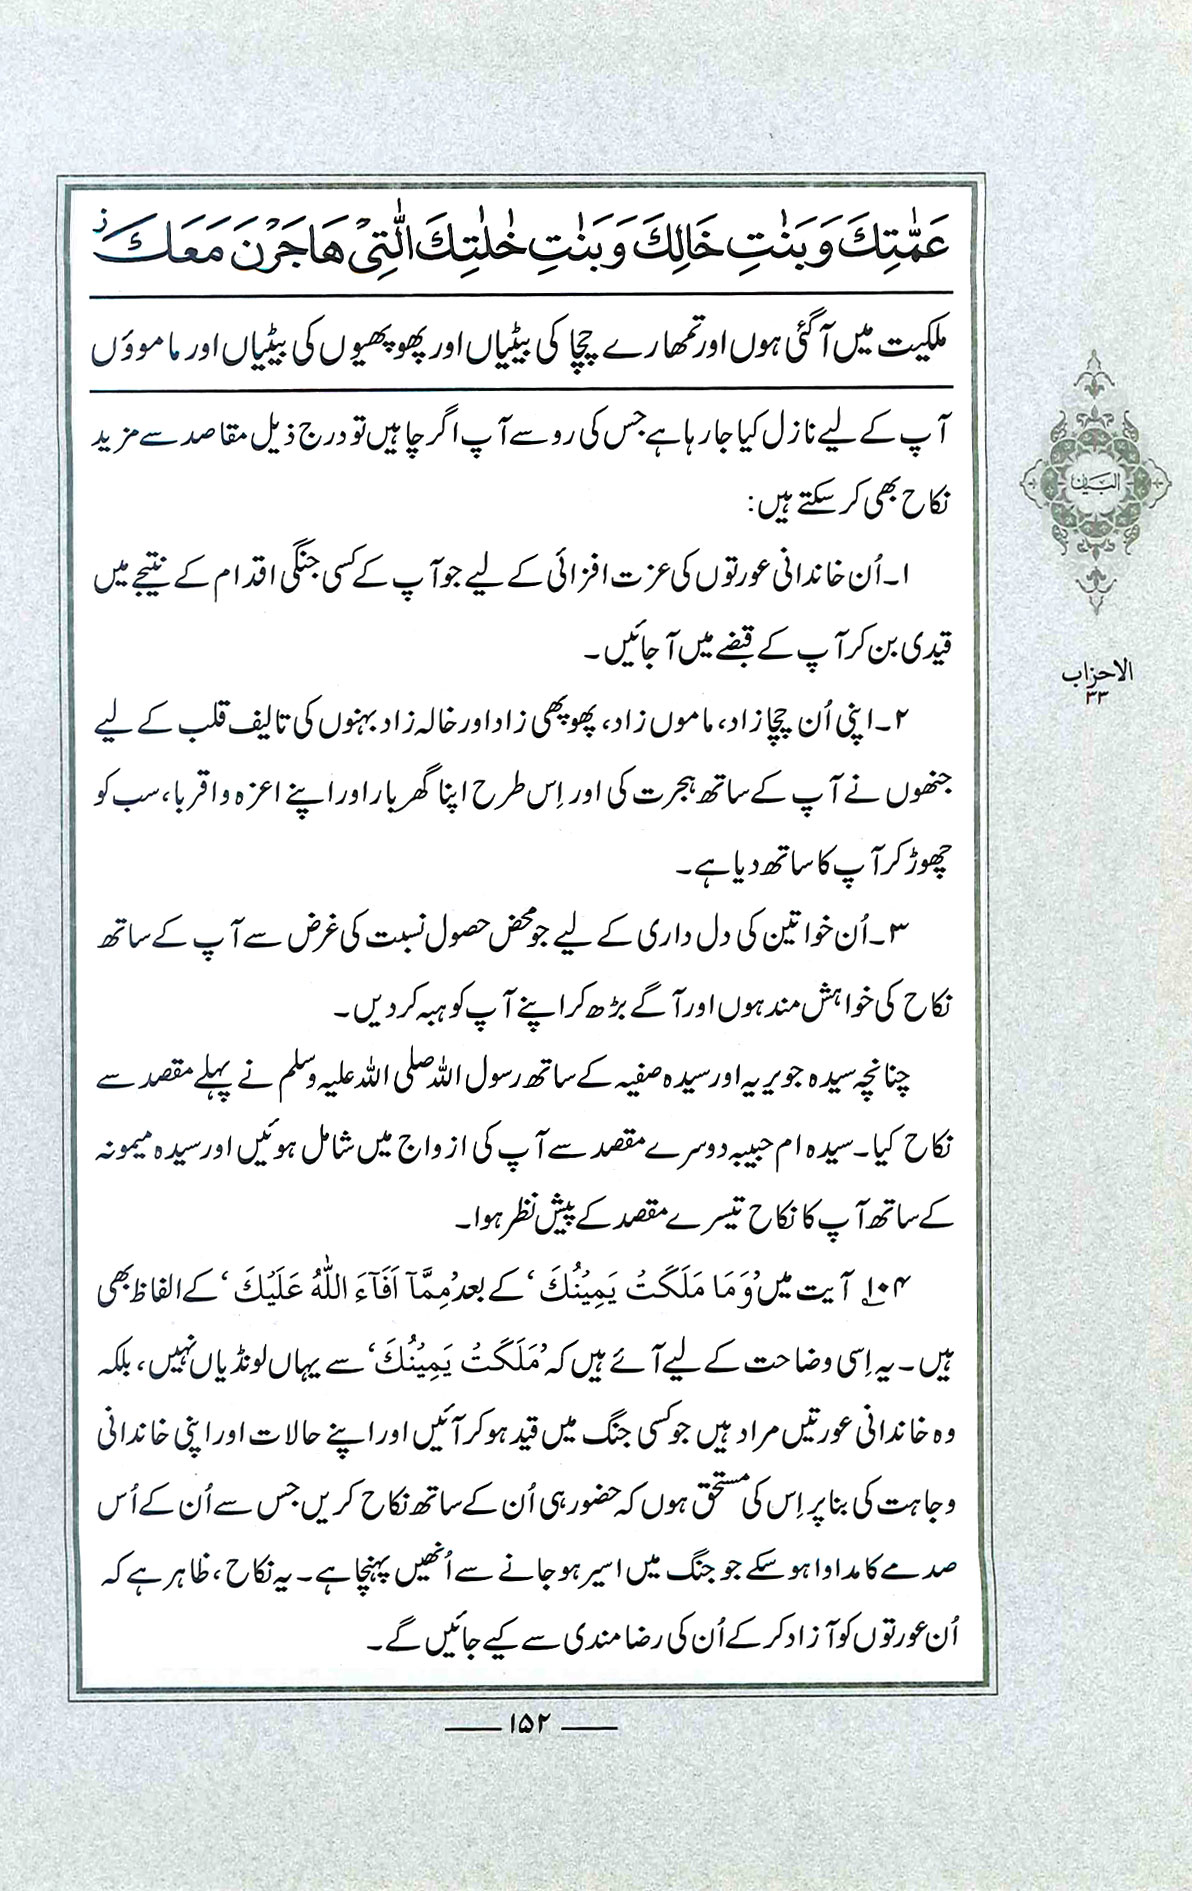 عَمّٰتِكَ وَبَنٰتِ خَالِكَ وَبَنٰتِ خٰلٰتِكَ الّٰتِيْ هَاجَرْنَ مَعَكَ ز
ملکیت میں آ گئی ہوں اور تمھارے چچا کی بیٹیاں اور پھوپھیوں کی بیٹیاں اور ماموؤں
آپ کے لیے نازل کیا جا رہا ہے جس کی رو سے آپ اگر چاہیں تو درج ذیل مقاصد سے مزید
نکاح بھی کر سکتے ہیں:
۱۔ اُن خاندانی عورتوں کی عزت افزائی کے لیے جو آپ کے کسی جنگی اقدام کے نتیجے میں
قیدی بن کر آپ کے قبضے میں آ جائیں۔
۲۔ اپنی اُن چچا زاد، ماموں زاد، پھوپھی زاد اور خالہ زاد بہنوں کی تالیف قلب کے لیے
جنھوں نے آپ کے ساتھ ہجرت کی اور اِس طرح اپنا گھر بار اور اپنے اعزہ و اقربا، سب کو
چھوڑ کر آپ کا ساتھ دیا ہے۔
۳۔ اُن خواتین کی دل داری کے لیے جو محض حصول نسبت کی غرض سے آپ کے ساتھ
نکاح کی خواہش مند ہوں اور آگے بڑھ کر اپنے آپ کو ہبہ کر دیں۔
چنانچہ سیدہ جویریہ اور سیدہ صفیہ کے ساتھ رسول اللہ صلی اللہ علیہ وسلم نے پہلے مقصد سے
نکاح کیا۔ سیدہ ام حبیبہ دوسرے مقصد سے آپ کی ازواج میں شامل ہوئیں اور سیدہ میمونہ
کے ساتھ آپ کا نکاح تیسرے مقصد کے پیش نظر ہوا۔
۱۰۴ آیت میں ’وَمَا مَلَكَتْ يَمِيْنُكَ‘ کے بعد ’مِمَّآ اَفَآءَ اللّٰهُ عَلَيْكَ‘ کے الفاظ بھی
ہیں۔ یہ اِسی وضاحت کے لیے آئے ہیں کہ ’مَلَكَتْ يَمِيْنُكَ‘ سے یہاں لونڈیاں نہیں، بلکہ
وہ خاندانی عورتیں مراد ہیں جو کسی جنگ میں قید ہو کر آئیں اور اپنے حالات اور اپنی خاندانی
وجاہت کی بنا پر اِس کی مستحق ہوں کہ حضور ہی اُن کے ساتھ نکاح کریں جس سے اُن کے اُس
صدمے کا مداوا ہو سکے جو جنگ میں اسیر ہو جانے سے اُنھیں پہنچا ہے۔ یہ نکاح، ظاہر ہے کہ
اُن عورتوں کو آزاد کر کے اُن کی رضا مندی سے کیے جائیں گے۔
البیان
الاحزاب
۳۳
۱۵۲